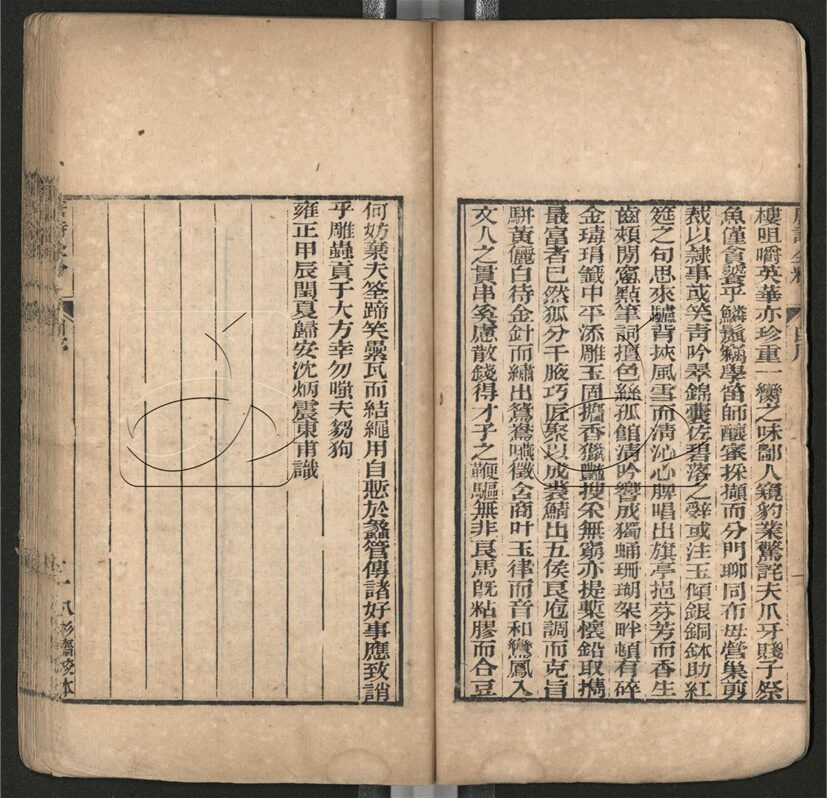 樓咀嚼英華亦珍重一臠之味鄙人窺豹業驚詫夫爪牙賤子祭
魚僅貪饕乎鱗鬣竊學笛師釀蜜採擷而分門聊同布母營巢剪
裁以隸事或笑靑吟翠錦囊佐碧落之辭或注玉傾銀銅鉢助紅
筵之句思來驢背挾風雪而淸沁心脾唱出旗亭挹芬芳而香生
齒頰閒窻點筆詞擅色絲孤館淸吟響成獨蛹珊瑚架畔頓有碎
金瑇瑁籤中平添雕玉固擴香獵艷搜采無窮亦提槧懷鉛取擕
最富者已然狐分千腋巧匠聚以成裘鯖出五侯良庖調而克旨
駢黃儷白待金針而繡出鴛鴦嚥徵含商叶玉律而音和鸞鳳入
文人之貫串奚慮散錢得才子之鞭驅無非良馬旣粘膠而合豆
何妨棄夫筌蹄笑纍瓦而結繩用自慙於蠡管傳諸好事應致誚
乎雕蟲貢于大方幸勿嗤夫芻狗
雍正甲辰閏夏歸安沈炳震東甫識